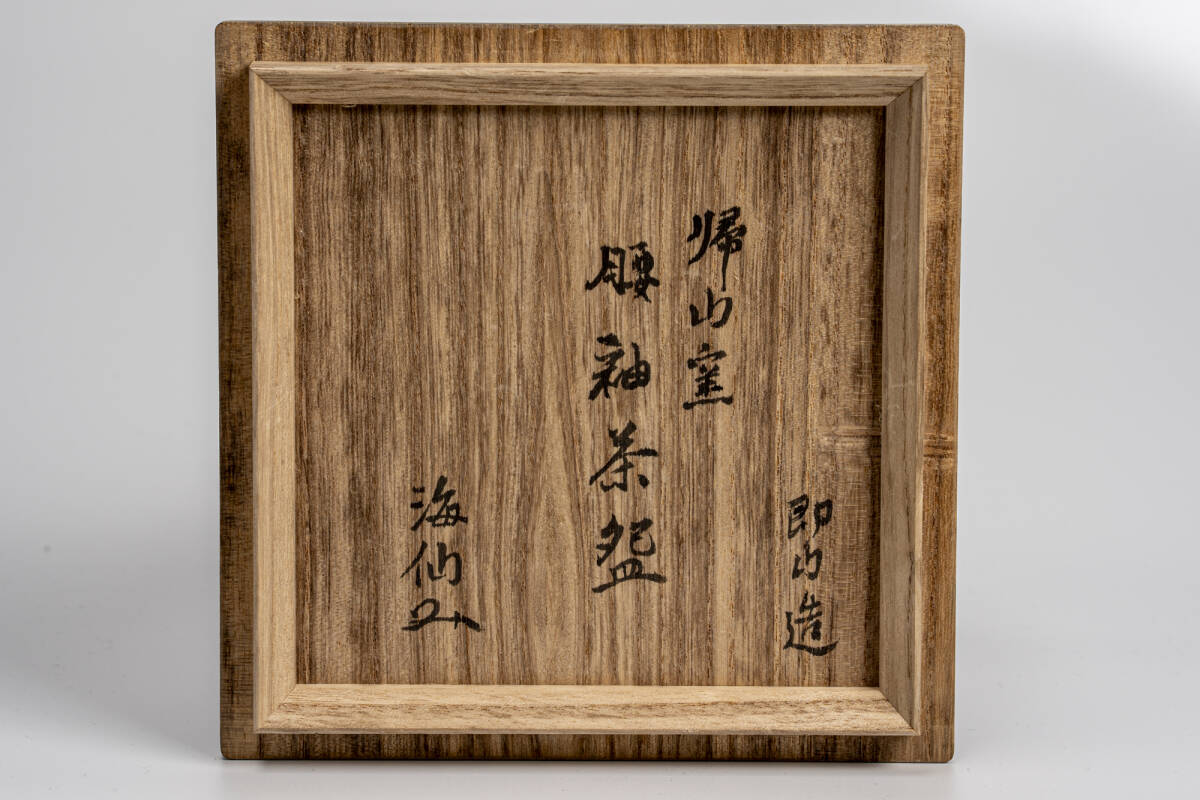 帰山窯
腰袖茶盌
即山造
海仙